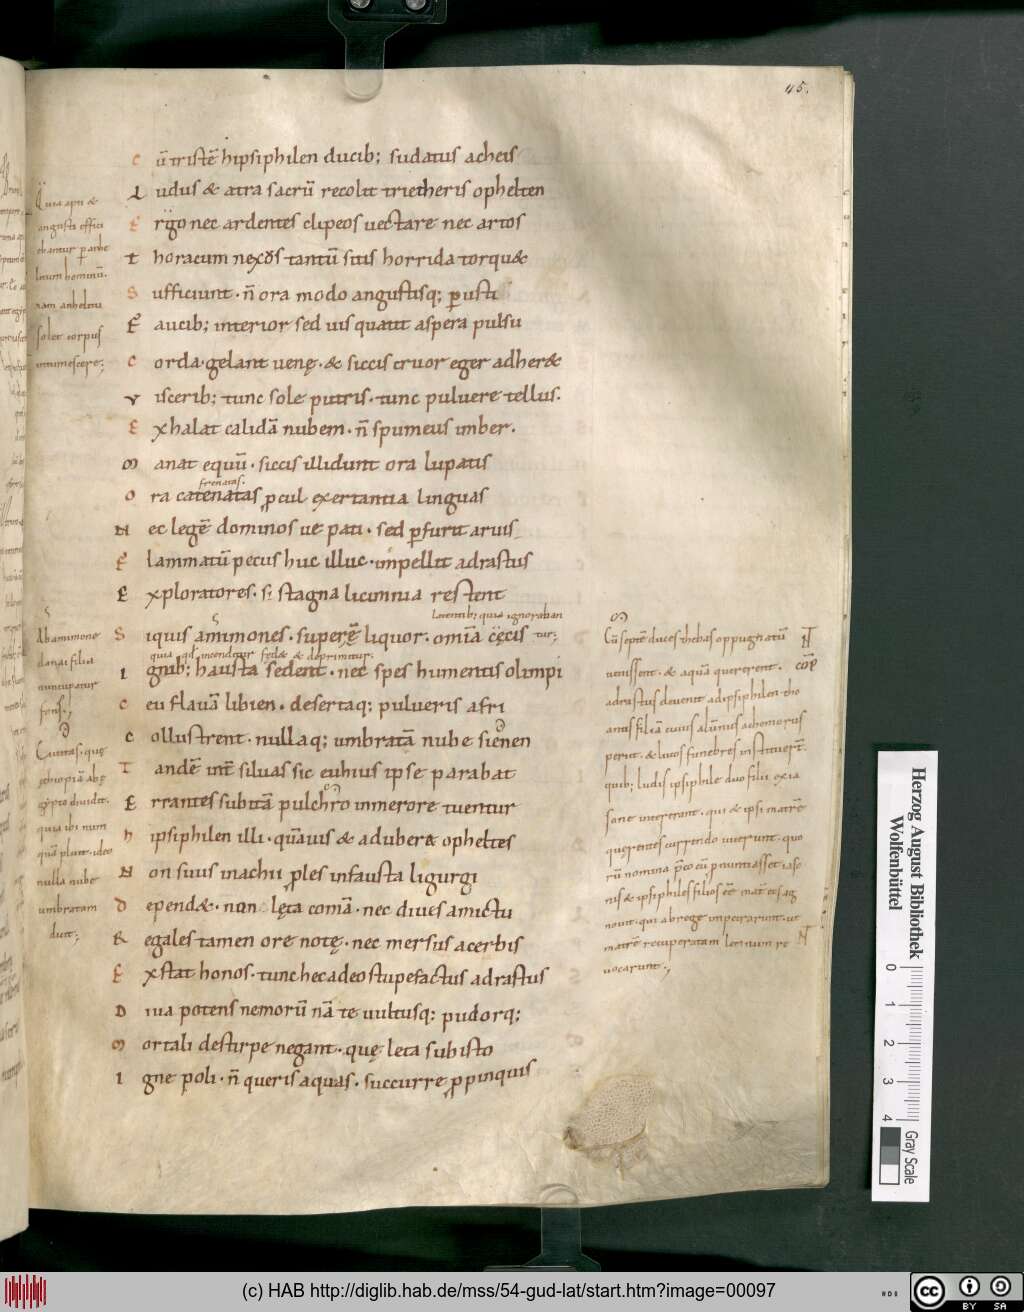 45.
C ū tristē hipsiphilen ducib; sudatus acheis
L udus & atra sacrū recolit trietheris ophelten
E rgo nec ardentes clipeos uectare nec artos
T horacum nex᷒ tantū sitis horrida torqu&
S ufficiunt · n̄ ora modo angustisq; ꝑusti
F aucib; interior sed uis quatit aspera pulsu
C orda · gelant uenę · & siccis cruor eger adher&
V iscerib; tunc sole putris · tunc puluere tellus.
E xhalat calidā nubem · n̄ spumeus imber .
M anat equū · siccis illidunt ora lupatis
frenatas.
O ra catenatas ꝓcul exertantia linguas
N ec legē dominos ue pati · sed ꝑfurit aruis
F lammatū pecus huc illuc · inpellit adrastus
E xploratores · si stagna licimnia restent
latentib; quia ignoraban
S iquis amimones · superę̄ liquor · omīa cęcis tur;
I gnib; hausta sedent · nec spes humentis olimpi
C eu flauā libien · desertaq; pulueris afri
C ollustrent · nullaq; umbratā nube sienen
T andē int̄ siluas sic euhius ipse parabat
E rrantes subitā pulchro inmerore tuentur
H ipsiphilen illi · quāuis & aduber& opheltes
N on suus inachii ꝓles infausta ligurgi
D epend& · non lęta comā · nec diues amictu
R egales tamen ore notę · nec mersus acerbis
E xstat honos · tunc hec adeo stupefactus adrastus
D iua potens nemorū nā te uultusq; pudorq;
M ortali destirpe negant · quę leta sub isto
I gne poli · n̄ queris aquas · succurre ꝓpinquis
Quia apti &
angusti effici
ebantur ꝑ anhe
litum hominū.
nam anhelitu
solet corpus
intumescere;
Ab amimone
danai filia
nuncupatur
fons;
Ciuitas · quę
ęthiopiā ab ę
gipto diuidit .
quia ibi num
quā pluit · ideo
nulla nube
umbratam
dicit;
Cū septē duces thebas oppugnatū
uenissent · & aquā quererent ·
adrastus deuenit ad ipsiphilen tho
antis filiā cuius alūnus achemorus
periit · & luctos funebres instituert̄.
quib; ludis ipsiphile duo filii
sone intererant · qui & ipsi matrē
querentes currendo uicerunt · quo
rū nomina p̄co cū ꝓnuntiasset iaso
nis & ipsiphiles filios ēē mat̄
nouit · qui a b rege impetrarunt · ut
matrē recuperatam lemnum re
uocarunt;
Herzog August Bibliothek
Wolfenbüttel
0 1 2 3 4
Gray Scale
(c) HAB http://diglib.hab.de/mss/54-gud-lat/start.htm?image=00097
cc BY SA